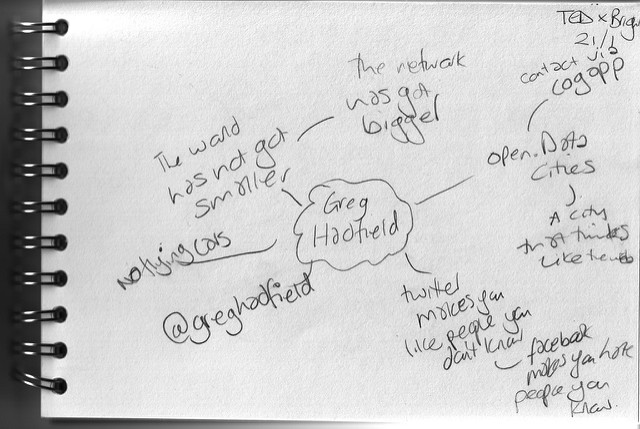 TEDx Brig
21/1
contact via
cogapp
the network
has got
bigger
The world
has not got
smaller
open.Data
Cities
A city
that thinks
like the web
Greg
Hadfield
No flying cars
@greghadfield
twitter
makes you
like people you
don't know
facebook
makes you hate
people you
know.